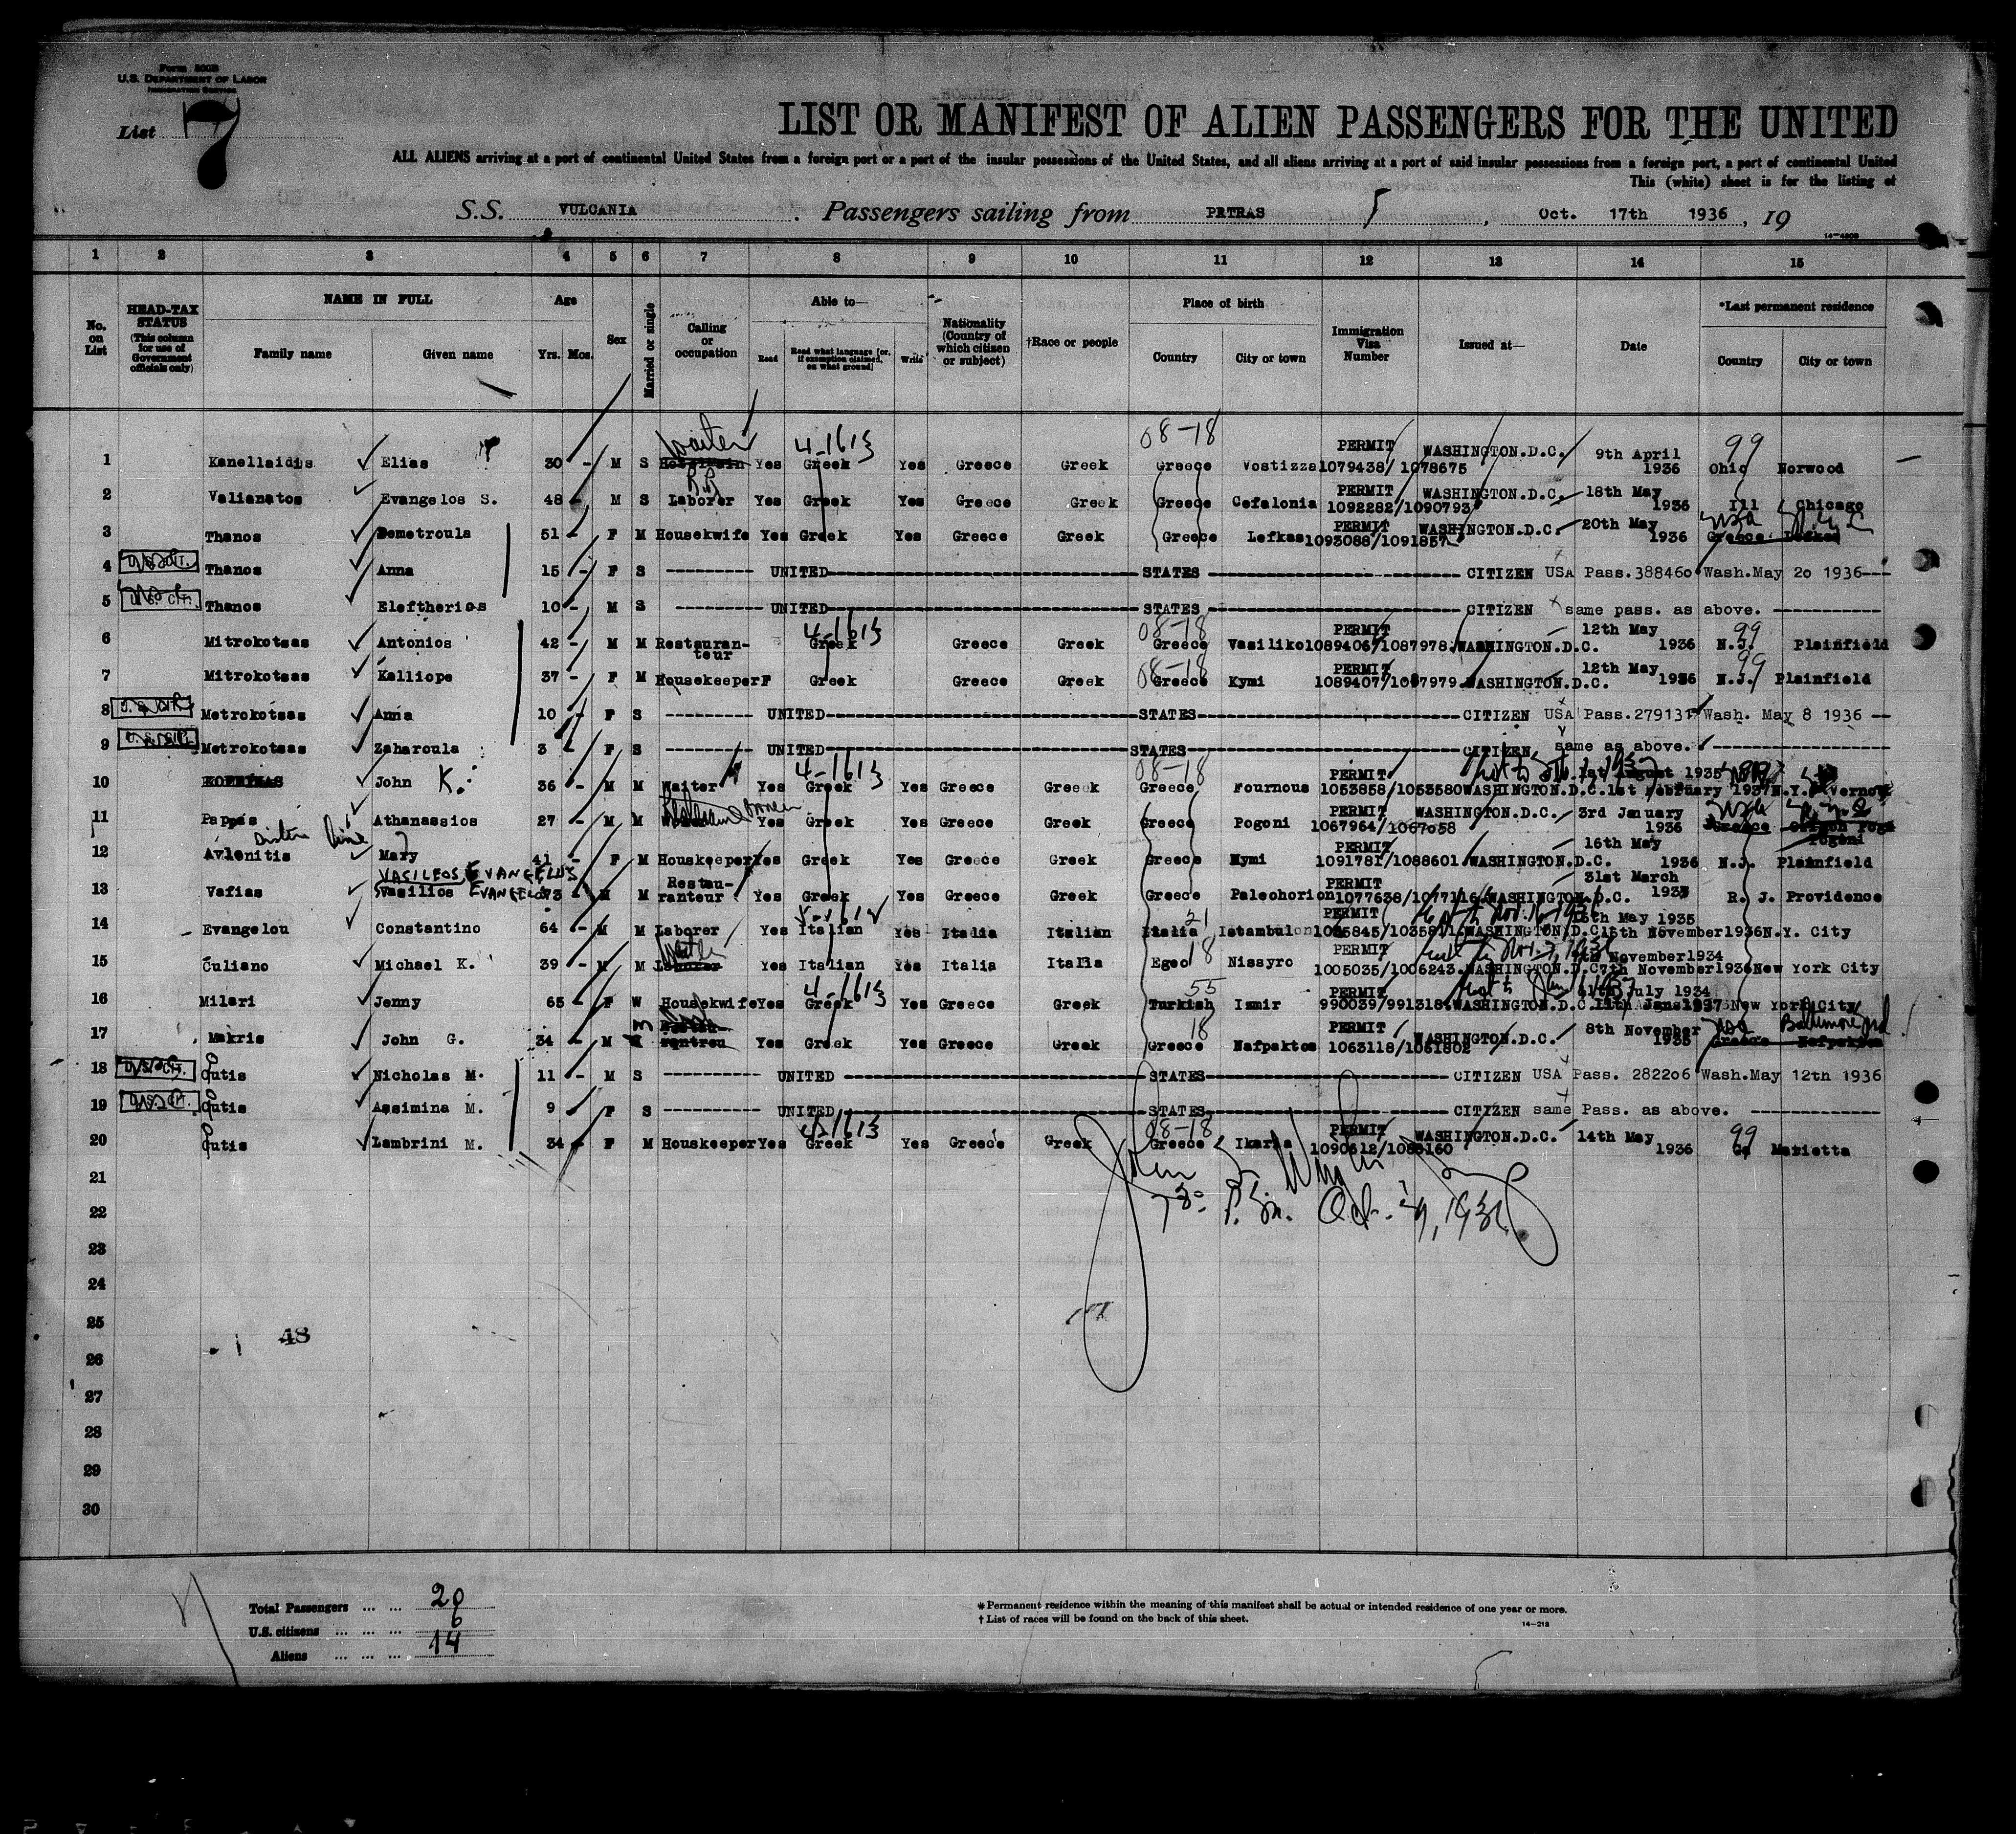 Form 500B
U.S. DEPARTMENT OF LABOR
IMMIGRATION SERVICE
List 7
LIST OR MANIFEST OF ALIEN PASSENGERS FOR THE UNITED
ALL ALIENS arriving at a port of continental United States from a foreign port or a port of the insular possessions of the United States, and all aliens arriving at a port of said insular possessions from a foreign port, a port of continental United
This (white) sheet is for the listing of
S.S. VULCANIA . Passengers sailing from PATRAS , Oct. 17th 1936 , 19
1 2 3 4 5 6 7 8 9 10 11 12 13 14 15
No. on List
HEAD-TAX STATUS (This column for use of Government officials only)
NAME IN FULL Family name Given name
Age Yrs. Mos.
Sex
Married or single
Calling or occupation
Able to— Read Read what language [or, if exemption claimed, on what ground] Write
Nationality (Country of which citizen or subject)
†Race or people
Place of birth Country City or town
Immigration Visa Number
Issued at—
Date
*Last permanent residence Country City or town
waiter 4-1613 08-18 99
1 Kanellaidis Elias 30 - M S Yes Greek Yes Greece Greek Greece Vostizza PERMIT 1079438/ 1078675 WASHINGTON.D.C. 9th April 1936 Ohio Norwood
R.R
2 Valianatos Evangelos S. 48 - M S Laborer Yes Greek Yes Greece Greek Greece Cefalonia PERMIT 1092282/1090793 WASHINGTON.D.C. 18th May 1936 Ill Chicago
3 Thanos Demetroula 51 - F M Housekwife Yes Greek Yes Greece Greek Greece Lefkas PERMIT 1093088/1091857 WASHINGTON.D.C. 20th May 1936 USA Greece Lefkas
4 U.S. Cit. Thanos Anna 15 - F S UNITED STATES CITIZEN USA Pass.388460 Wash.May 20 1936
5 U.S. Cit. Thanos Eleftherios 10 - M S UNITED STATES CITIZEN same pass. as above.
4-1613 08-18 99
6 Mitrokotsas Antonios 42 - M M Restauran-teur Greek Greece Greek Greece Vasiliko PERMIT 1089406/1087978. WASHINGTON.D.C. 12th May 1936 N.J. Plainfield
08-18 99
7 Mitrokotsas Kalliope 37 - F M Housekeeper Greek Greece Greek Greece Kymi PERMIT 1089407/1087979. WASHINGTON.D.C. 12th May 1936 N.J. Plainfield
8 Metrokotsas Anna 10 - F S UNITED STATES CITIZEN USA Pass.279131 Wash. May 8 1936
9 Metrokotsas Zaharoula 3 - F S UNITED STATES CITIZEN same as above.
4-1613 08-18
10 John K. 36 - M M Waiter Yes Greek Yes Greece Greek Greece Fournous PERMIT 1053858/1053580 WASHINGTON.D.C. 1st August 1935 1st February 1937 N.Y. Vernon
11 Pappas Athanassios 27 - M M Yes Greek Yes Greece Greek Greece Pogoni PERMIT 1067964/1067058 WASHINGTON.D.C. 3rd January 1936 USA Greece
12 Avlonitis Mary 41 - F M Houskeeper Yes Greek Yes Greece Greek Greece Kymi PERMIT 1091781/1088601 WASHINGTON.D.C. 16th May 1936 N.J. Plainfield
VASILEOS EVANGELOS
13 Vafias Vasilios EVANGELOS 73 - M M Restau-ranteur Yes Greek Yes Greece Greek Greece Paleohorion PERMIT 1077638/1077116 WASHINGTON.D.C. 31st March R. J. Providence
21
14 Evangelou Constantino 64 - M M Laborer Yes Italian Yes Italia Italian Italia Istambul PERMIT WASHINGTON.D.C. 15th May 1935 15th November1936 N.Y. City
waiter 18
15 Culiano Michael K. 39 - M M Laborer Yes Italian Yes Italia Italia Egeo Nissyro PERMIT 1005035/1006243. WASHINGTON.D.C. 7th November1934 7th November1936 New York City
4-1613 55
16 Milari Jenny 65 - F W Housekwife Yes Greek Yes Greece Greek Turkish Izmir PERMIT 990039/991318. WASHINGTON.D.C. 11th July 1934 New York City
18
17 Makris John G. 34 - M M Yes Greek Yes Greece Greek Greece Nafpaktos PERMIT 1063118/1061802 WASHINGTON.D.C. 8th November 1935 USA Baltimore Md Greece Nafpaktos
18 U.S. Cit. Cutis Nicholas M. 11 - M S UNITED STATES CITIZEN USA Pass. 282206 Wash.May 12th 1936
19 U.S. Cit. Cutis Assimina M. 9 F S UNITED STATES CITIZEN same Pass. as above.
1613 08-18 99
20 Cutis Lambrini M. 34 - F M Houskeeper Yes Greek Yes Greece Greek Greece Ikaria PERMIT WASHINGTON.D.C. 14th May 1936 Ga Marietta
21
22
23
24
25
48
26
27
28
29
30
Total Passengers ... ... 20
U.S. citizens ... ... ... 6
Aliens ... ... ... 14
*Permanent residence within the meaning of this manifest shall be actual or intended residence of one year or more.
†List of races will be found on the back of this sheet.
14—213